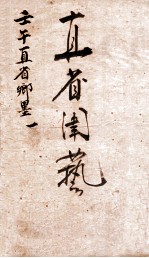 直省闈藝
壬午直省鄉墨一